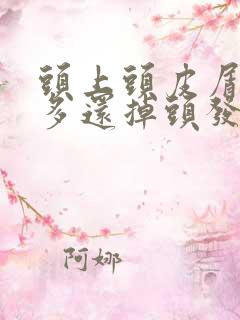 頭上頭皮屑
多還掉頭發
阿娜